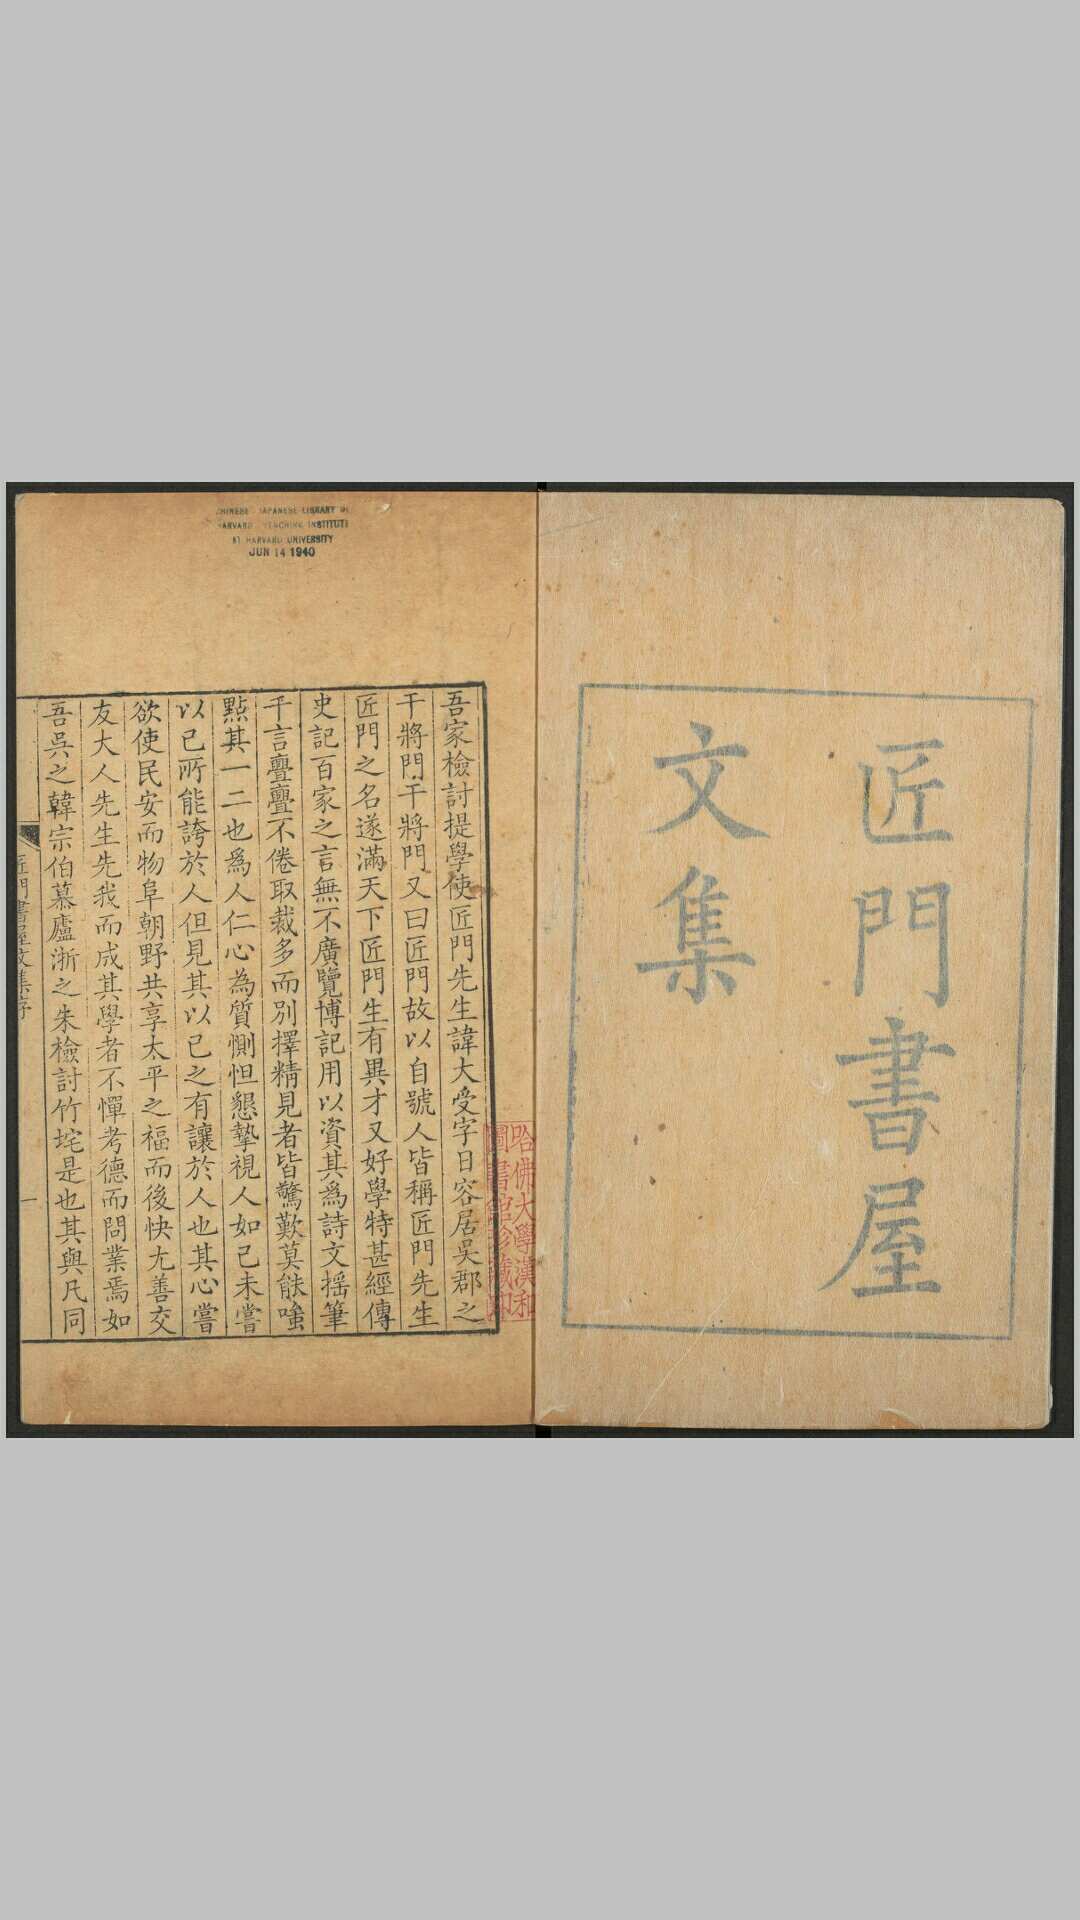 匠門書屋
文集
CHINESE JAPANESE LIBRARY OF
HARVARD YENCHING INSTITUTE
AT HARVARD UNIVERSITY
JUN 14 1940
哈佛大學漢和
圖書館珍藏印
吾家檢討提學使匠門先生諱大受字日容居吳郡之
干將門干將門又曰匠門故以自號人皆稱匠門先生
匠門之名遂滿天下匠門生有異才又好學特甚經傳
史記百家之言無不廣覽博記用以資其爲詩文揺筆
千言亹亹不倦取裁多而別擇精見者皆驚歎莫能嗤
點其一二也爲人仁心為質惻怛懇摯視人如己未嘗
以己所能誇於人但見其以己之有讓於人也其心嘗
欲使民安而物阜朝野共享太平之福而後快尤善交
友大人先生先我而成其學者不憚考德而問業焉如
吾吳之韓宗伯慕廬浙之朱檢討竹垞是也其與凡同
匠門書屋文集序
一